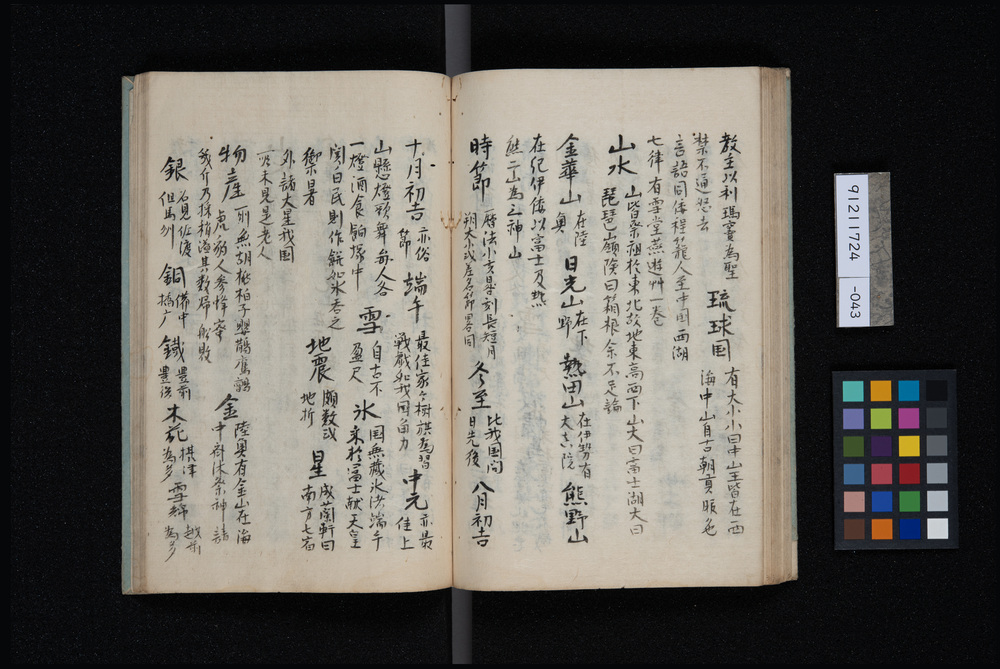 教主以利瑪竇為聖
禁不通怒去
琉球国
有大小小曰中山王皆在西
海中山自古朝貢服色
言語同倭程籠人至中国西湖
七律有雪堂燕遊艸一卷
山水
山皆祖於東北故地東高西下山大曰富士湖大曰
琵琶山嶺険曰箱根余不足論
金華山
在陸
奥
日光山
在下
野
熱田山
在伊勢有
大
院
熊野山
在紀伊倭以富士及熱
熊二山為三神山
時節
暦法小异昼刻長短月
朔大小或差名節畧同
冬至
比我国間
日先後
八月初吉
十月初吉
亦俗
節
端午
最佳家々樹旗為習
戦戯如我国角力
中元
亦最
佳上
山懸燈歌舞每人各
一燈酒食餉塚中
雪
自古不
盈尺
氷
国無蔵氷法端午
来於富士献天皇
関白民則作餅如氷呑之
禦暑
地震
頗数或
地折
星
成蘭軒曰
南方七宿
外諸大星我国
所未見是老人
物産
一別無胡桃柏子鸚鵡鷹鸇
虎豹人参蜂蜜
金
陸奥有金山在海
中斎沐祭神請
幾斤乃採稍溢其数
船敗
銀
石見佐渡
但馬
銅
備中
鐵
豊前
豊後
木花
摂津
為多
雪綿
越前
為多
91211724
-043